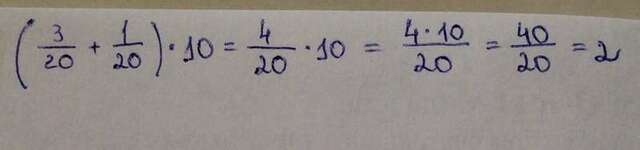 (3/20 + 1/20) · 10 = 4/20 · 10 = 4·10/20 = 40/20 = 2